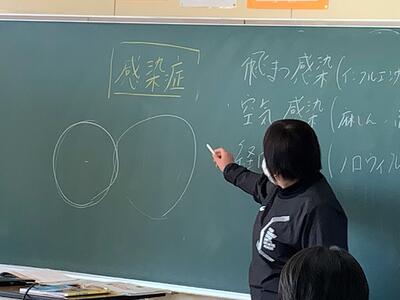 感染症
飛まつ感染(インフルエンザ
空気感染(麻しん・
経 (ノロウィル